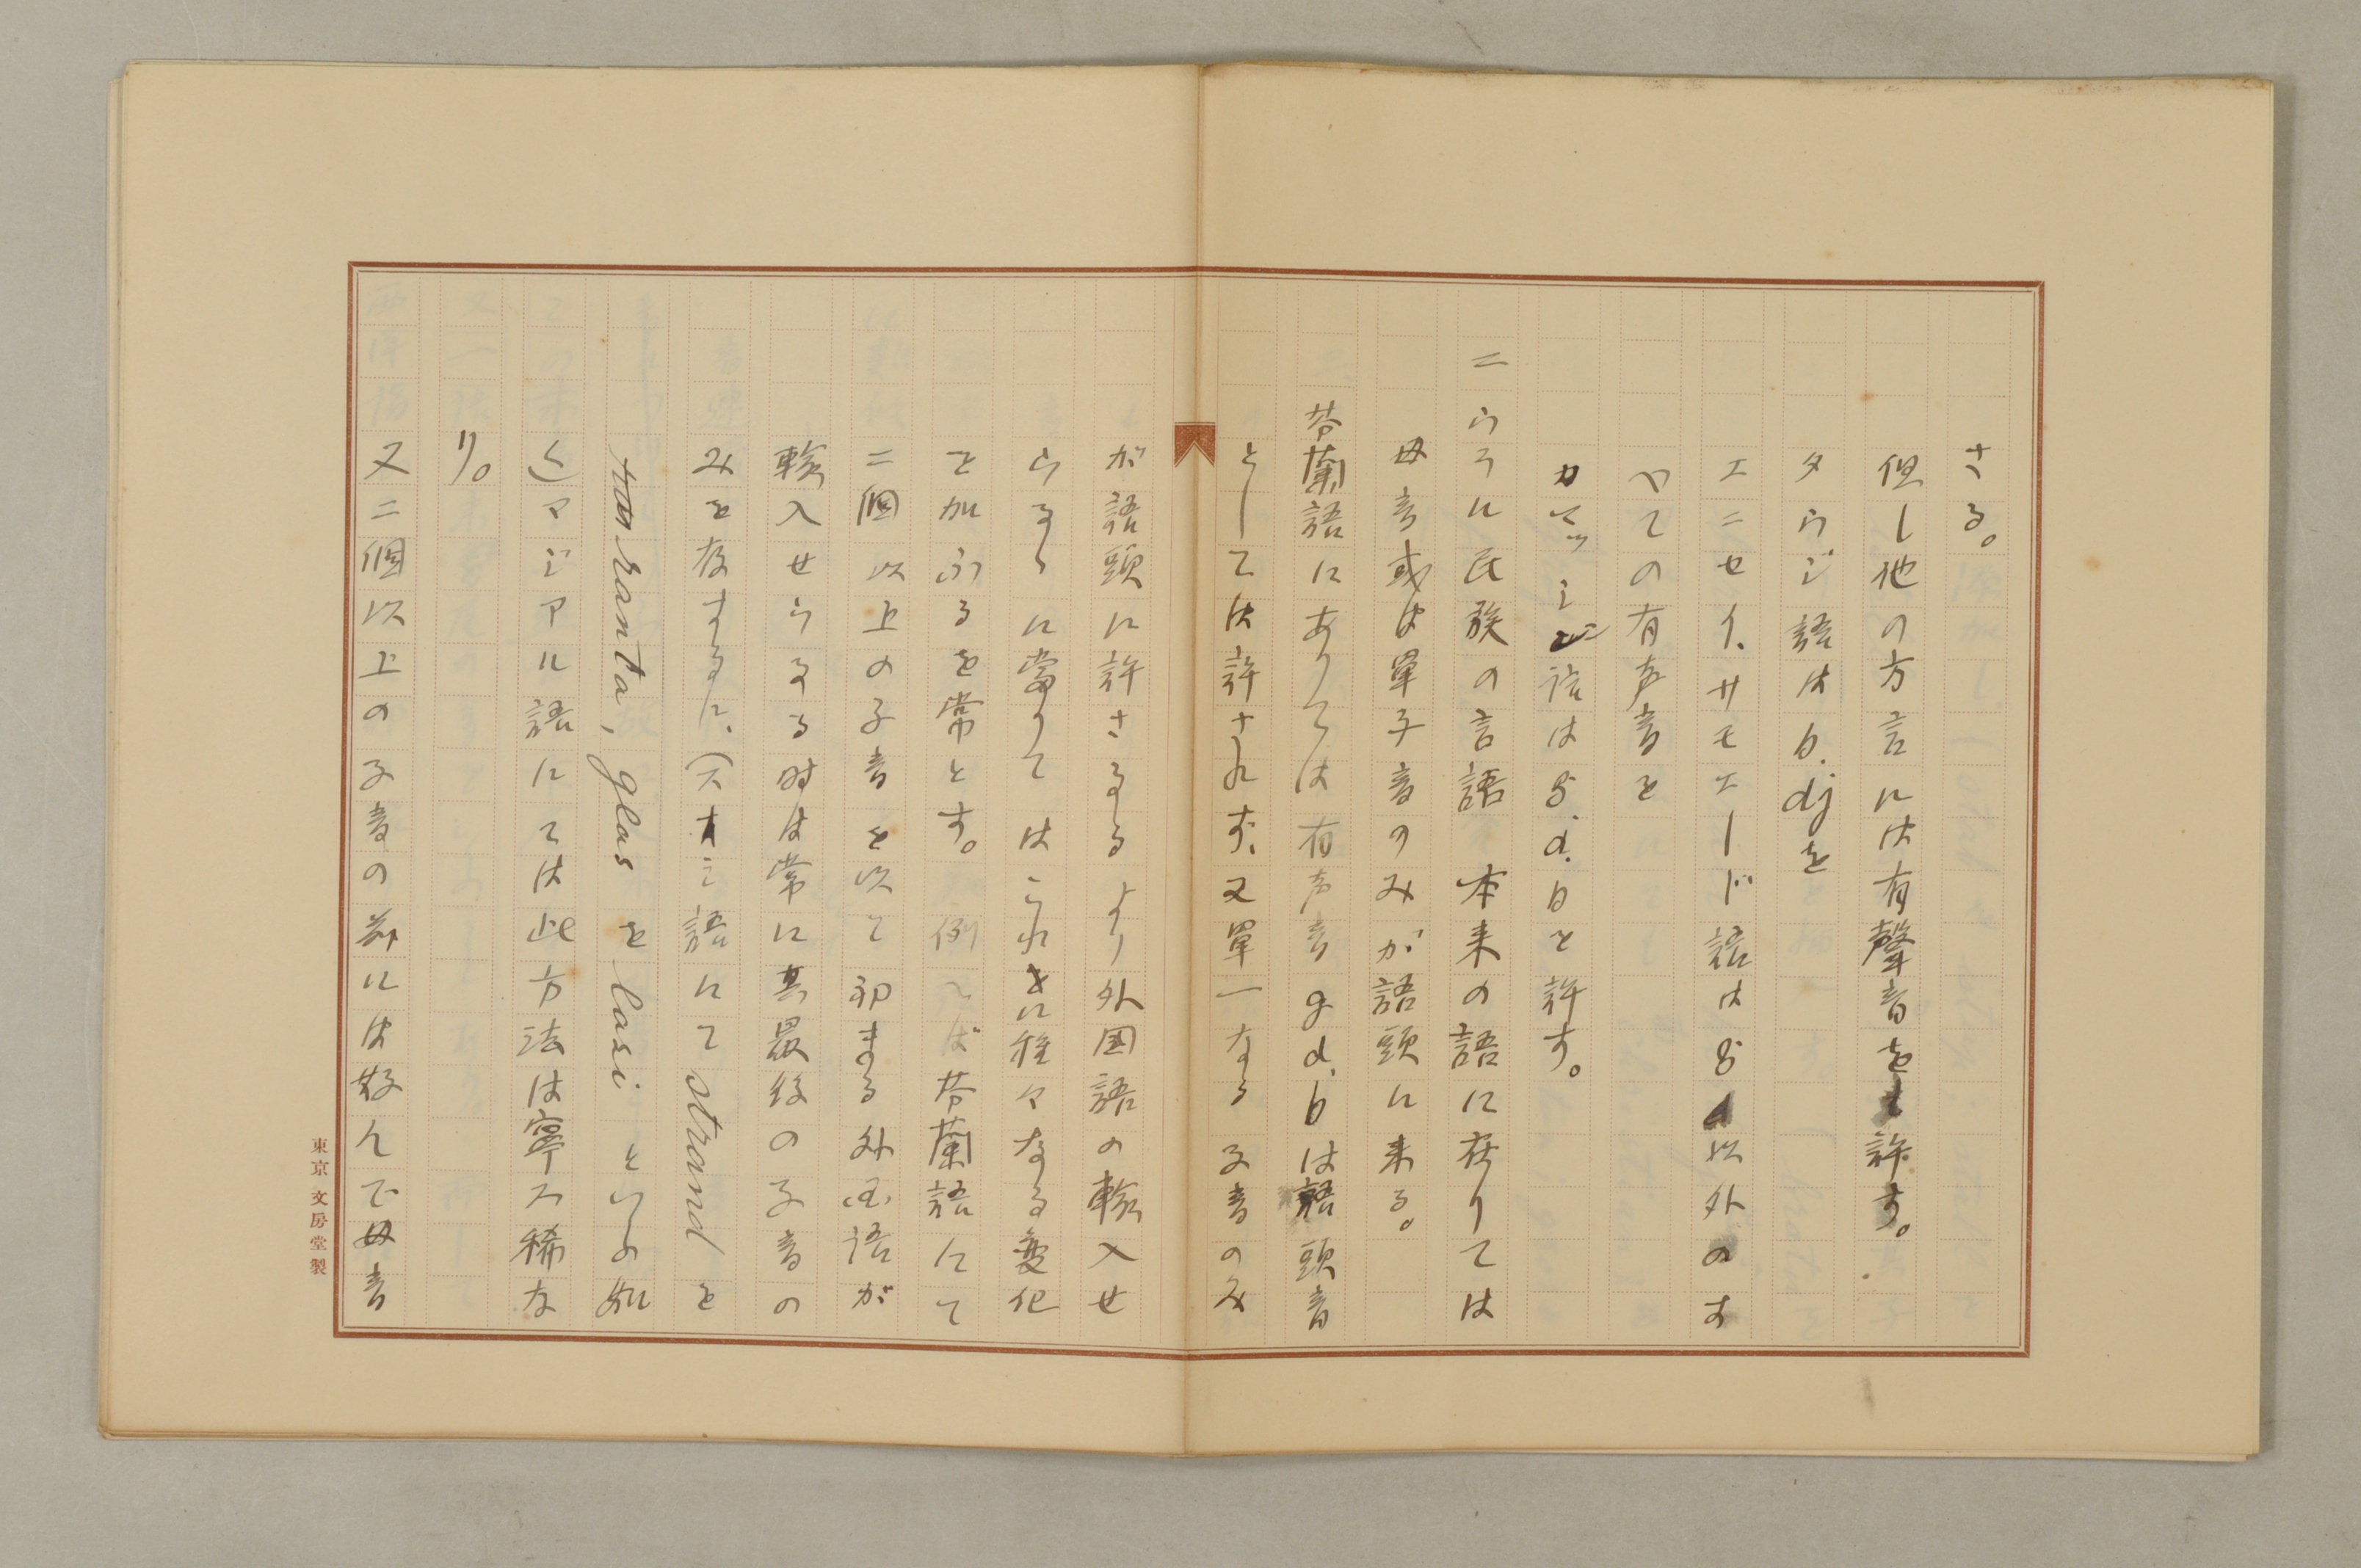 さる。
但し他の方言には有聲音をも許す。
タウジ語は b. dj を
エニセイ.サモエード語は g d 以外のす
べての有声音を
カマッシン語は g. d. b と許す。
二 ウラに民族の言語 本来の語に在りては
母音或は單子音のみが語頭に来る。
芬蘭語にありては有声音 g d. b は語頭音
としては許されず、又單一なる子音のみ
が語頭に許さるるより外国語の輸入せ
らるゝに當りてはこれに種々なる變化
を加ふるを常とす。例へば芬蘭語にて
二個以上の子音を以て初まる外国語が
輸入せらるる時は常に其最後の子音の
みを存するに、(スオミ語にて strand を
ranta, glas を lasi といふ如
く)マジアル語にては此方法は寧ろ稀な
り。
又二個以上の子音の前には好んで母音
東京 文房堂製